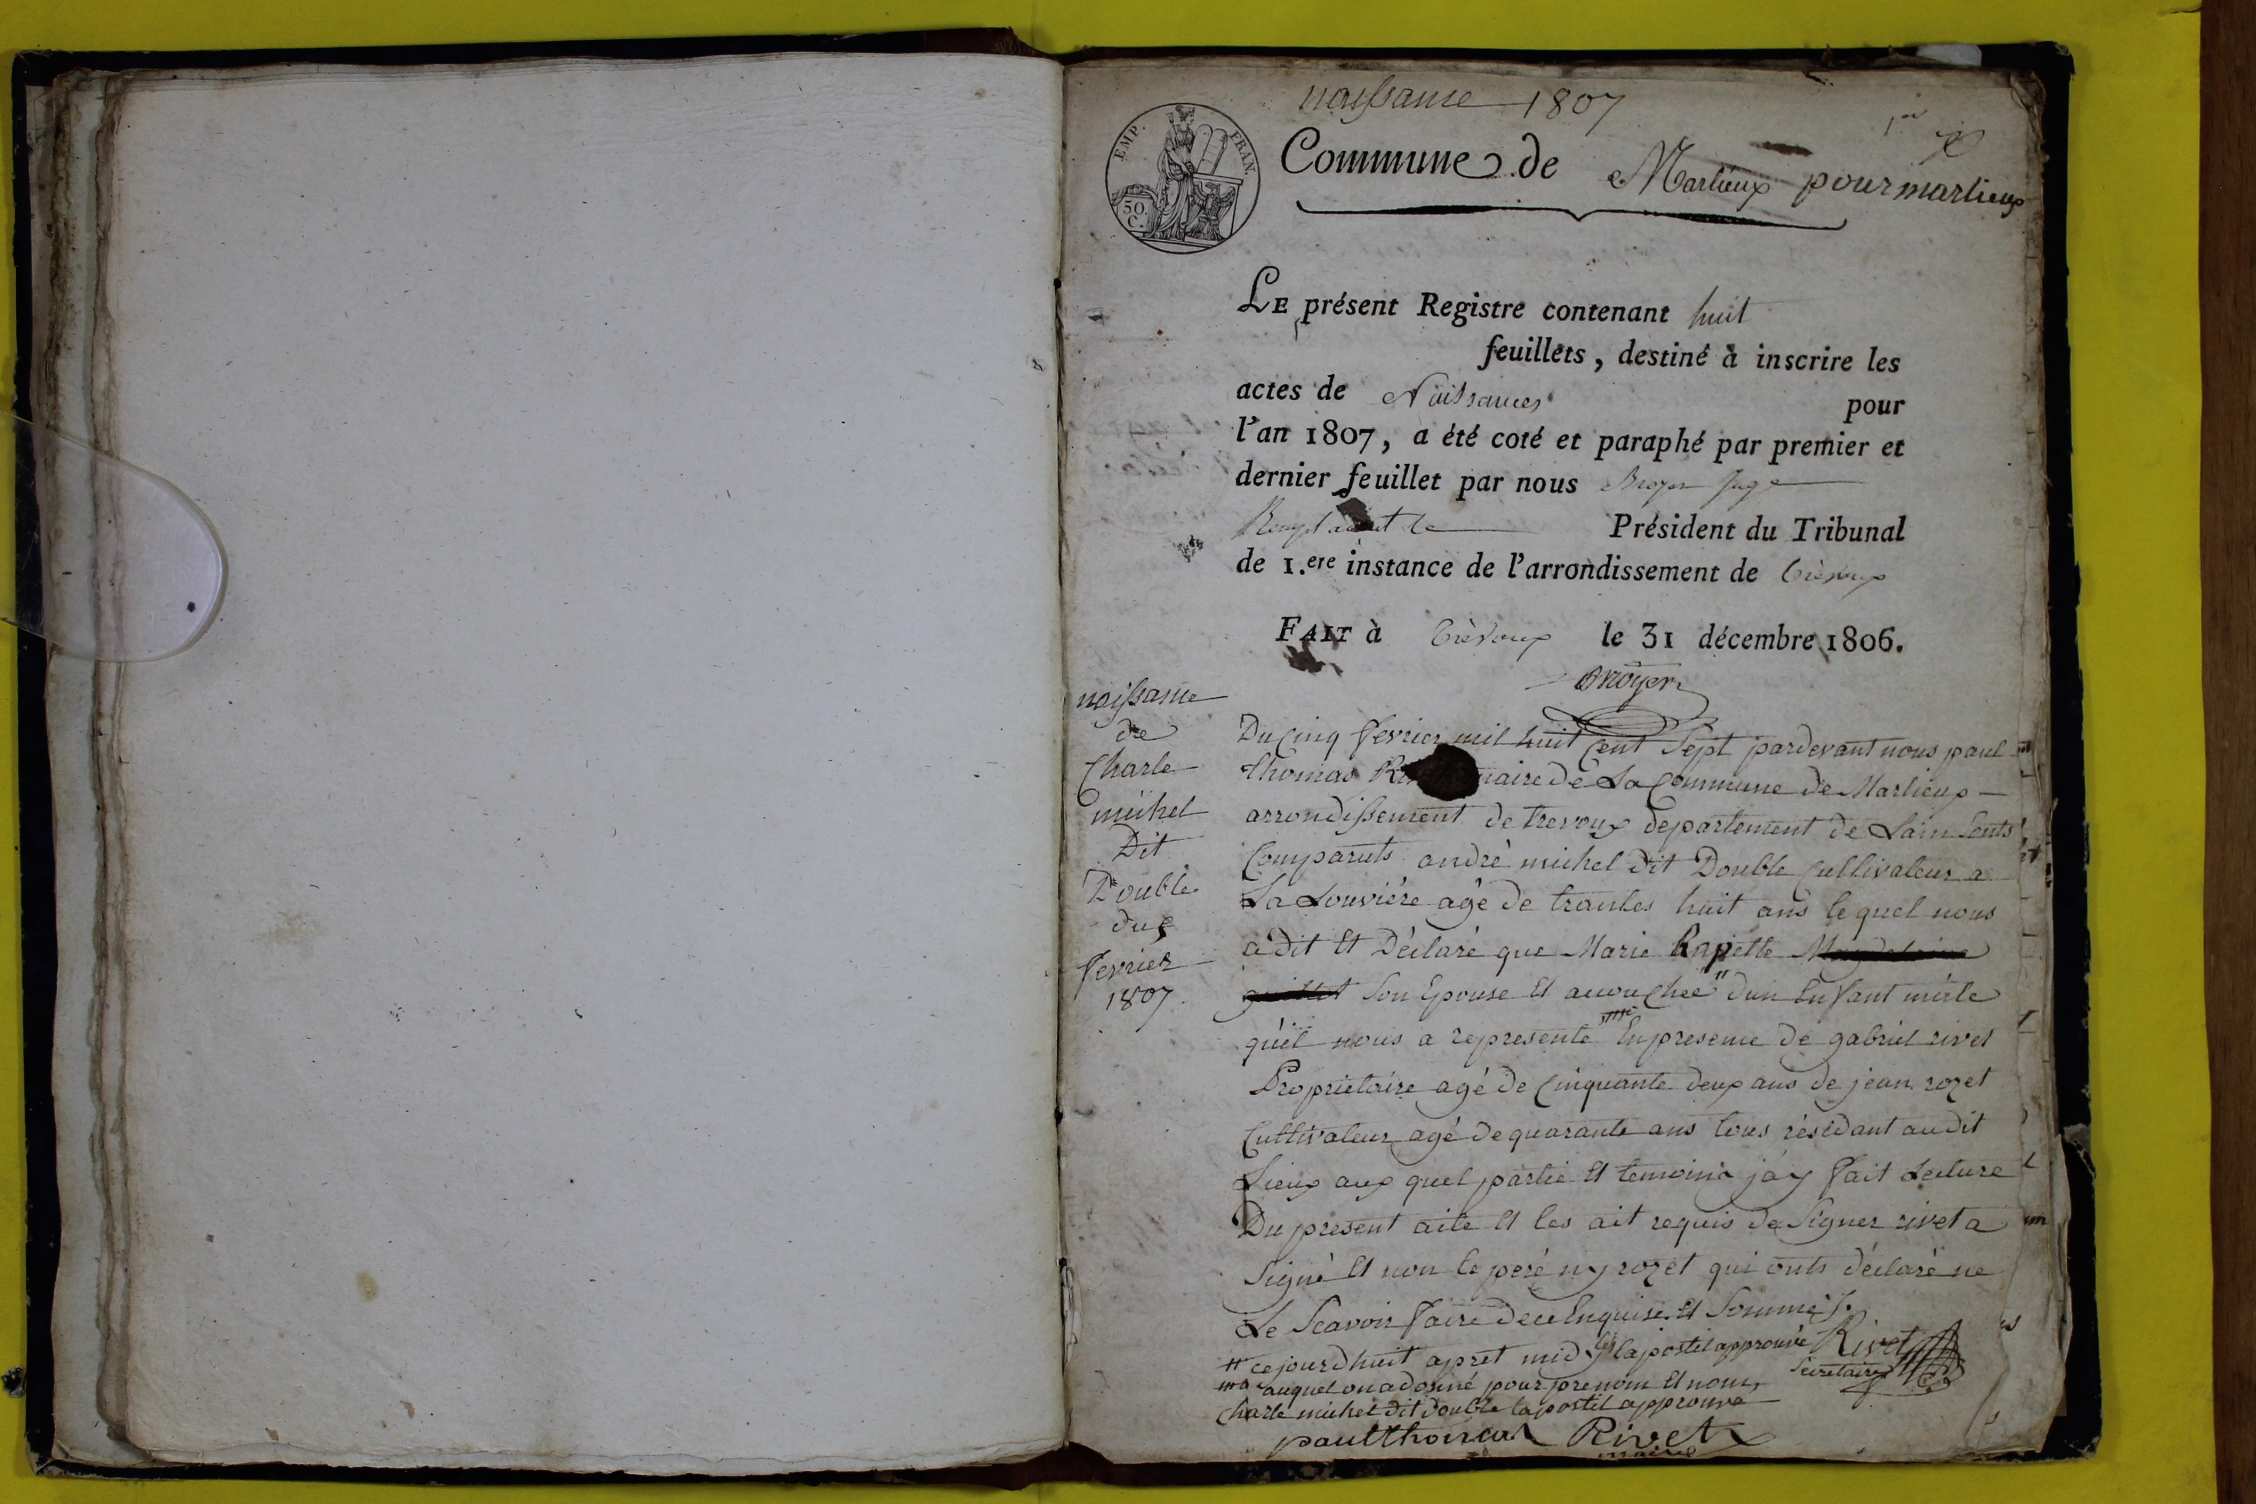 naissance 1807
1er
EMP. FRAN.
50 C.
Commune de Marlieux pour marlieux
LE présent Registre contenant huit
feuillets, destiné à inscrire les
actes de Naissances pour
l'an 1807, a été coté et paraphé par premier et
dernier feuillet par nous Broyer Juge
Remplaçant le Président du Tribunal
de 1.ere instance de l'arrondissement de Trévoux
FAIT à Trévoux le 31 décembre 1806.
Broyer
naissance
de
Charle
michel
Dit
Double
du 5
fevrier
1807
Du Cinq fevrier mil huit Cent Sept pardevant nous paul
thomas maire de La Commune de Marlieux
arrondissement de trevoux departement de Lain Sents
Comparuts andré michel dit Double Cultivateur a
La Louvière agé de trantes huit ans le quel nous
a dit Et Déclaré que Marie Rapette
Son Epouse Et acouchée " dun Enfant mâle
qu'il nous a representé En presence de gabriel rivet
Proprietaire agé de Cinquante deux ans de jean rozet
Cultivateur agé de quarante ans tous résidant audit
Lieux aux quel partie Et temoins jay fait Lecture
Du present acte Et les ait requis de Signer rivet a
Signé Et non le peré ny rozet qui onts déclaré ne
Le Scavoir faire de ce Enquise Et Sommés.
" ce jourdhuit apret midy lapostil approuvé Rivet
Secretaire
auquel on a donné pour prenom Et nom,
Charle michel dit double lapostil approuvé
paul thomas Rivet
maire